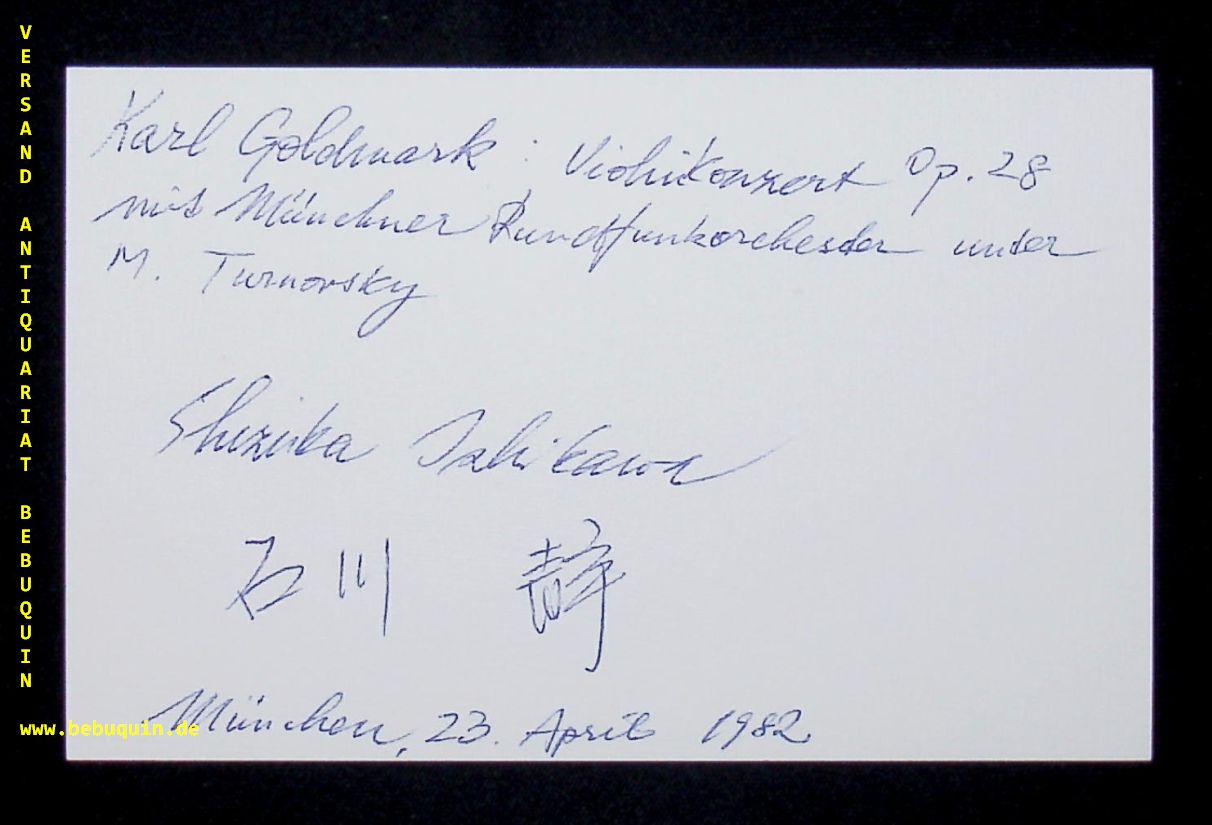 VERSAND ANTIQUARIAT BEBUQUIN
www.bebuquin.de
Karl Goldmark : Violinkonzert Op. 28
mit Münchner Rundfunkorchester unter
M. Turnovsky
Shizuka Ishikawa
石川 静
München, 23. April 1982